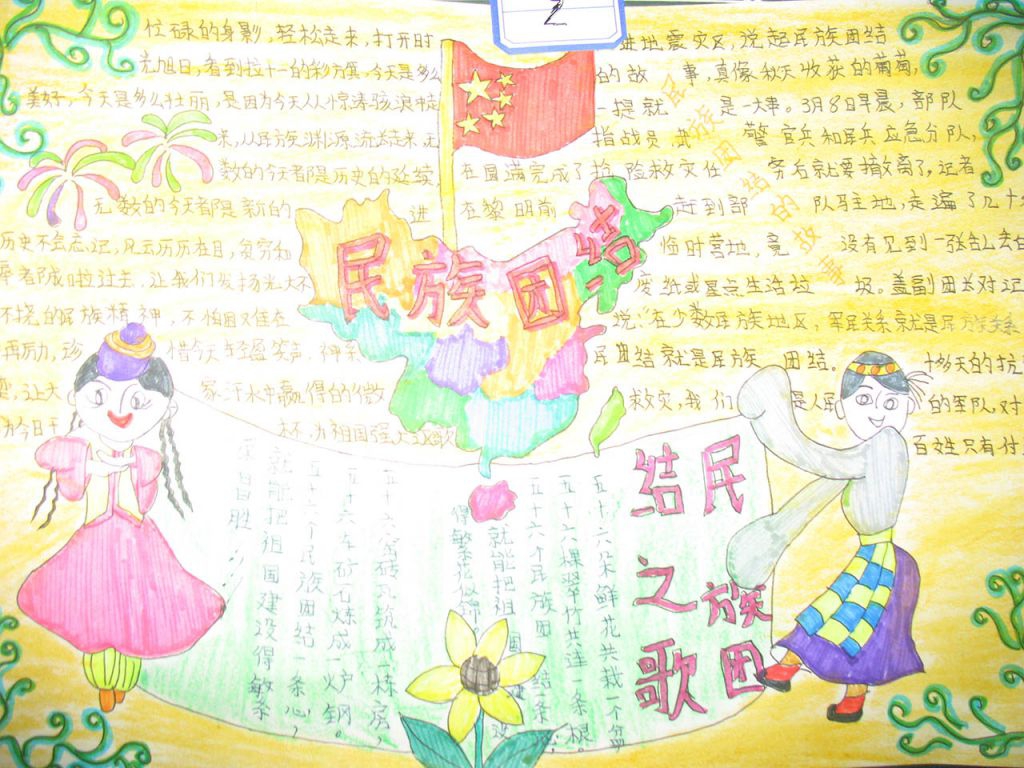 忙碌的身影,轻松走来,打开时
光旭日,看到拉十一的彩方旗,今天是多么
美好,今天是多么壮丽,是因为今天从惊涛骇浪中走
来,从民族渊源流长走来 无
数的今天都是历史的延续,
无数的今天都是新的 进
历史不会忘记,风云历历在目,贫穷和
卑都成啦过去,让我们发扬光大不
不挠的民族精神,不怕困难在
再励,珍惜今天轻盈笑声,神采
让大家汗水中赢得的微
为今日干杯,为祖国强大讴歌
2
民族团结
民族团结的故事
进地震灾区,说起民族团结
的故事,真像秋天收获的葡萄,
一提就是一大串。3月8日早晨,部队
指战员 武警官兵和军兵应急分队,
在圆满完成了抢险救灾任务后就要撤离了,记者
在黎明前赶到部队驻地,走遍了几十
临时营地,竟没有见到一张
废纸或星点生活垃圾。盖副团长对记
说:在少数民族地区,军民关系就是民族关系
民团结就是民族团结。十多天的抗
救灾,我们是人民的军队,对
百姓只有付
民族团
结之歌
五十六朵鲜花共栽一个盆
五十六棵翠竹共连一条根。
五十六个民族团结条
就能把祖国建设
得繁花似锦
五十六窑砖瓦筑成一栋房,
五十六车矿石炼成一炉钢。
五十六个民族团结一条心,
就能把祖国建设得繁
荣昌胜